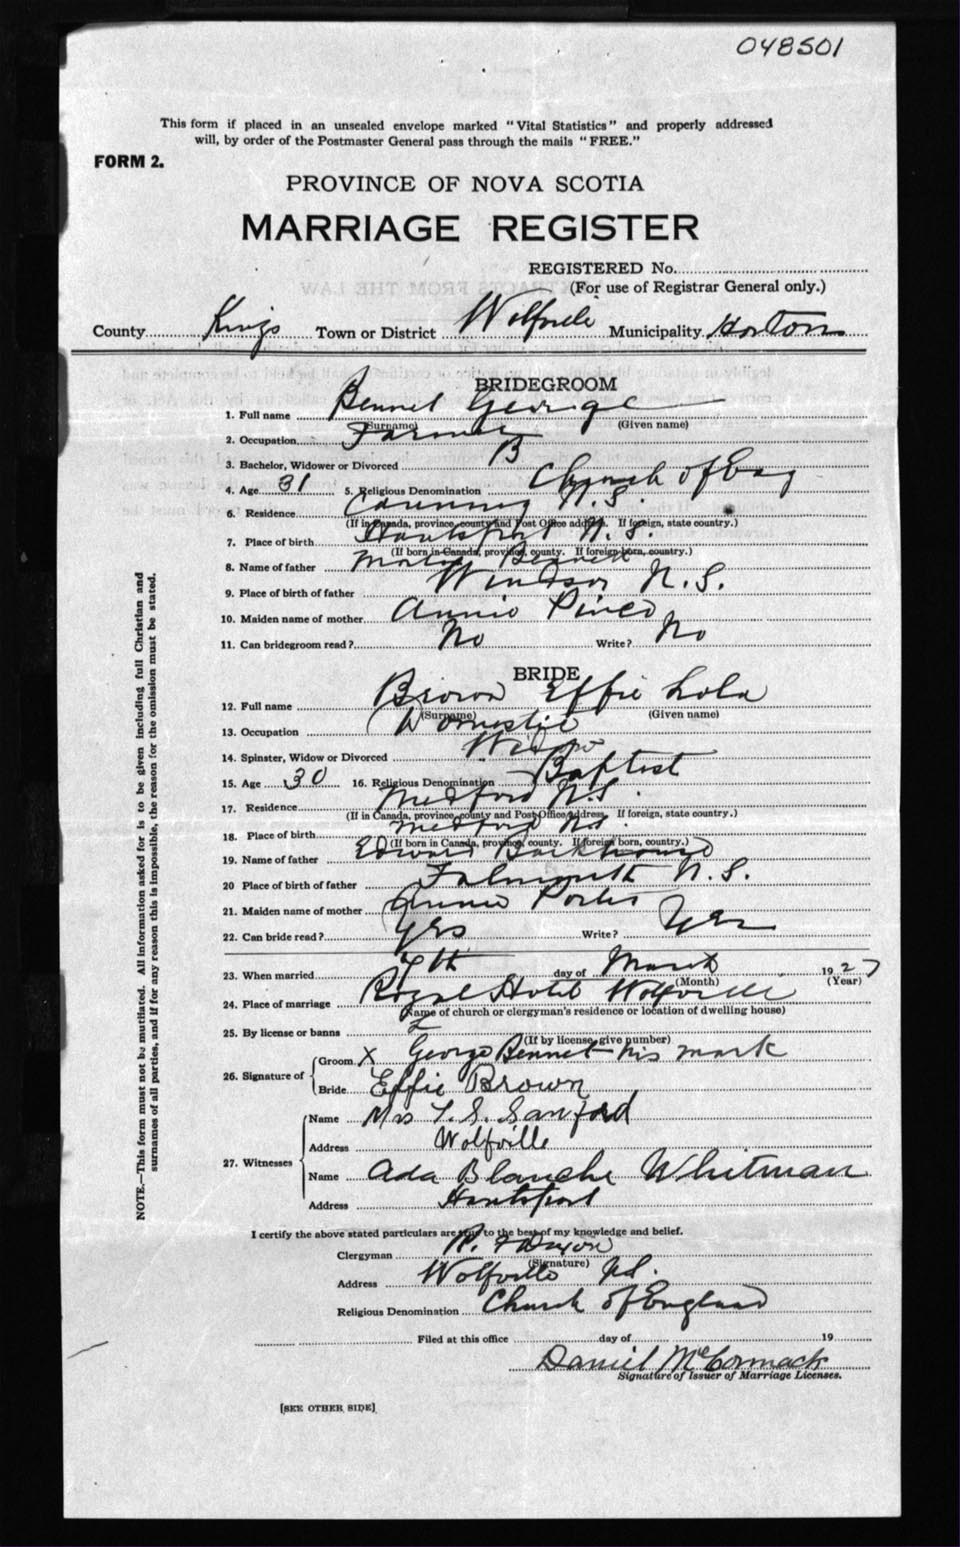 048501
This form if placed in an unsealed envelope marked "Vital Statistics" and properly addressed
will, by order of the Postmaster General pass through the mails "FREE."
FORM 2.
PROVINCE OF NOVA SCOTIA
MARRIAGE REGISTER
REGISTERED No.
(For use of Registrar General only.)
County Kings Town or District Wolfville Municipality Horton
BRIDEGROOM
1. Full name Bennet George
(Surname) (Given name)
2. Occupation Farmer
3. Bachelor, Widower or Divorced B
4. Age 31 5. Religious Denomination Church of Eng
6. Residence Canning N.S.
(If in Canada, province, county and Post Office address. If foreign, state country.)
7. Place of birth Hantsport N.S.
(If born in Canada, province, county. If foreign born, country.)
8. Name of father Bennett
9. Place of birth of father Windsor N.S.
10. Maiden name of mother Annie Pineo
11. Can bridegroom read? No Write? No
BRIDE
12. Full name Brown Effie Lola
(Surname) (Given name)
13. Occupation Domestic
14. Spinster, Widow or Divorced Widow
15. Age 30 16. Religious Denomination Baptist
17. Residence Medford N.S.
(If in Canada, province, county and Post Office Address. If foreign, state country.)
18. Place of birth Medford N.S.
(If born in Canada, province, county. If foreign born, country.)
19. Name of father Edward Barkhouse
20 Place of birth of father Falmouth N.S.
21. Maiden name of mother Annie Porter
22. Can bride read? Yes Write? Yes
23. When married 7th day of March 1927
(Month) (Year)
24. Place of marriage Royal Hotel Wolfville
(Name of church or clergyman's residence or location of dwelling house)
25. By license or banns L
(If by license, give number)
26. Signature of Groom X George Bennet his mark
Bride Effie Brown
27. Witnesses Name Mrs T. S. Sanford
Address Wolfville
Name Ada Blanche Whitman
Address Hantsport
I certify the above stated particulars are true to the best of my knowledge and belief.
Clergyman R. F. Dixon
(Signature)
Address Wolfville N.S.
Religious Denomination Church of England
Filed at this office day of 19
Daniel McCormack
Signature of Issuer of Marriage Licenses.
[SEE OTHER SIDE]
NOTE.—This form must not be mutilated. All information asked for is to be given including full Christian and
surnames of all parties, and if for any reason this is impossible, the reason for the omission must be stated.